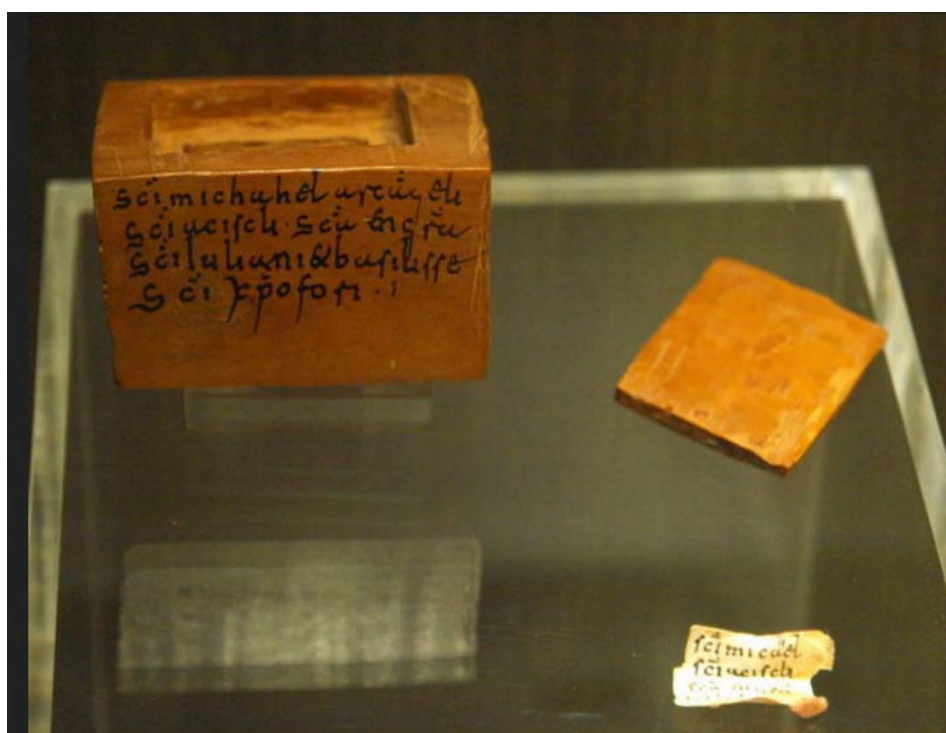 Sc̄i michahel arcāgeli
Sc̄i aciscli · Sc̄a engrā
Sc̄i Iuliani & basilisse
Sc̄i xp̄ofori
sc̄i micael
sc̄i aciscli
sc̄a